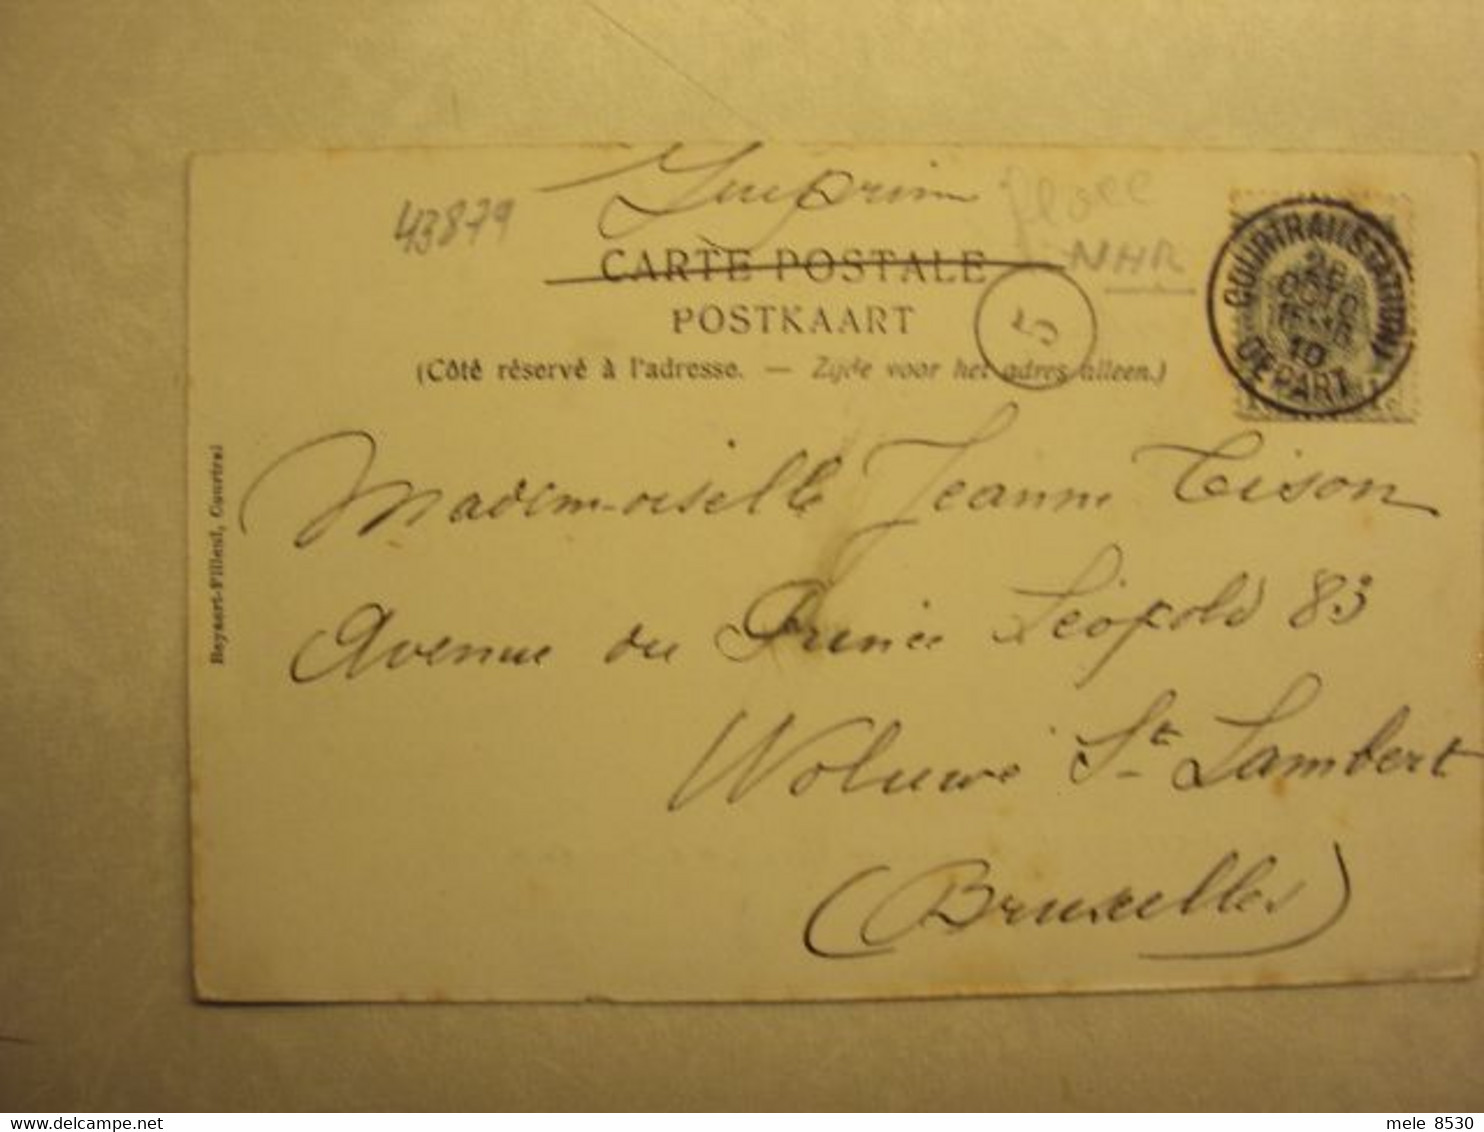 43879
Imprim
NHR
CARTE POSTALE
POSTKAART
5
(Côté réservé à l'adresse. — Zijde voor het adres alleen.)
COURTRAI (STATION)
26
OCT
10
DEPART
Mademoiselle Jeanne Tison
Avenue du Prince Léopold 83
Woluwe St Lambert
(Bruxelles)
Beyaert-Filleul, Courtrai
delcampe.net
mele 8530